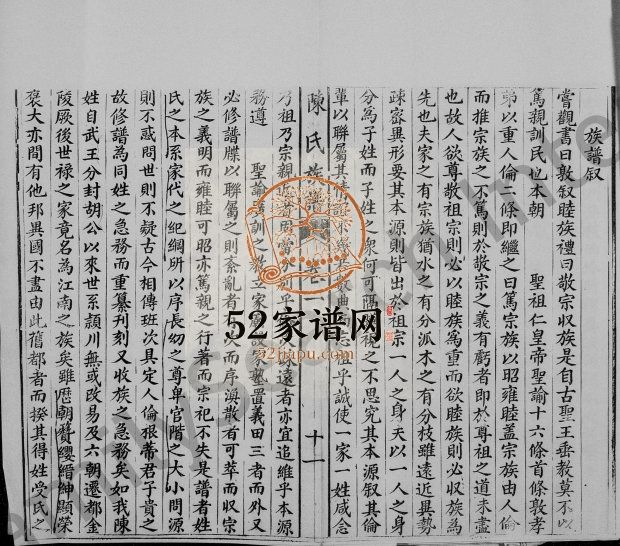 族譜叙
嘗觀書曰敦叙睦族禮曰敬宗収族是自古聖王垂教莫不以
篤親訓民也本朝 聖祖仁皇帝聖諭十六條首條敦孝
弟以重人倫二條即繼之曰篤宗族以昭雍睦蓋宗族由人倫
而推宗族之不篤則於敬宗之義有虧者即於尊祖之道未盡
也故人欲尊敬祖宗則必以睦族為重而欲睦族則必収族為
先也夫家之有宗族猶水之有分派木之有分枝雖遠近異勢
疎宻異形要其本源則皆出於祖宗一人之身夫以一人之身
分為子姓而子姓之衆何可隔之不思究其本源叙其倫
軰以聯屬其情誼不忘祖乎誠使一家一姓咸念
陳氏族譜 卷一 十一
乃祖乃宗親近者固當亦宜追維乎本源
務遵 聖諭訓之教立家塾置義田三者而外又
必修譜牒以聯屬之則紊亂者而序渙散者可萃而収宗
族之義明而雍睦可昭亦篤親之行著而宗祀不失是譜者姓
氏之本系家代之紀綱所以序長幼之尊卑官階之大小問源
則不惑問世則不疑古今相傳班次具定人倫根蒂君子貴之
故修譜為同姓之急務而重纂刋刻又収族之急務矣如我陳
姓自武王分封胡公以來世系頴川無或改易及六朝遷都金
陵厥後世禄之家竟名為江南之族矣雖歴朝簪纓縉紳顯榮
褒大亦間有他邦異國不盡由此舊都者而揆其得姓受氏之
52家谱网
52jiapu.com